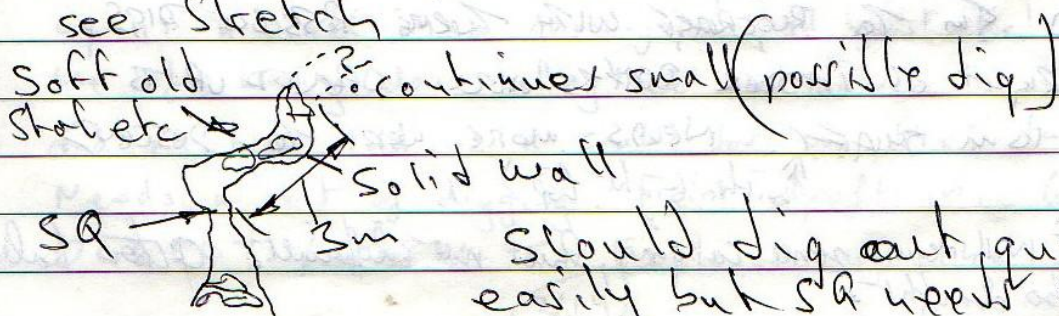 see Sketch
Soft old
Stal etc
? continues small (possible dig)
Solid wall
SQ
3m
should dig out qu
easily but SQ needs